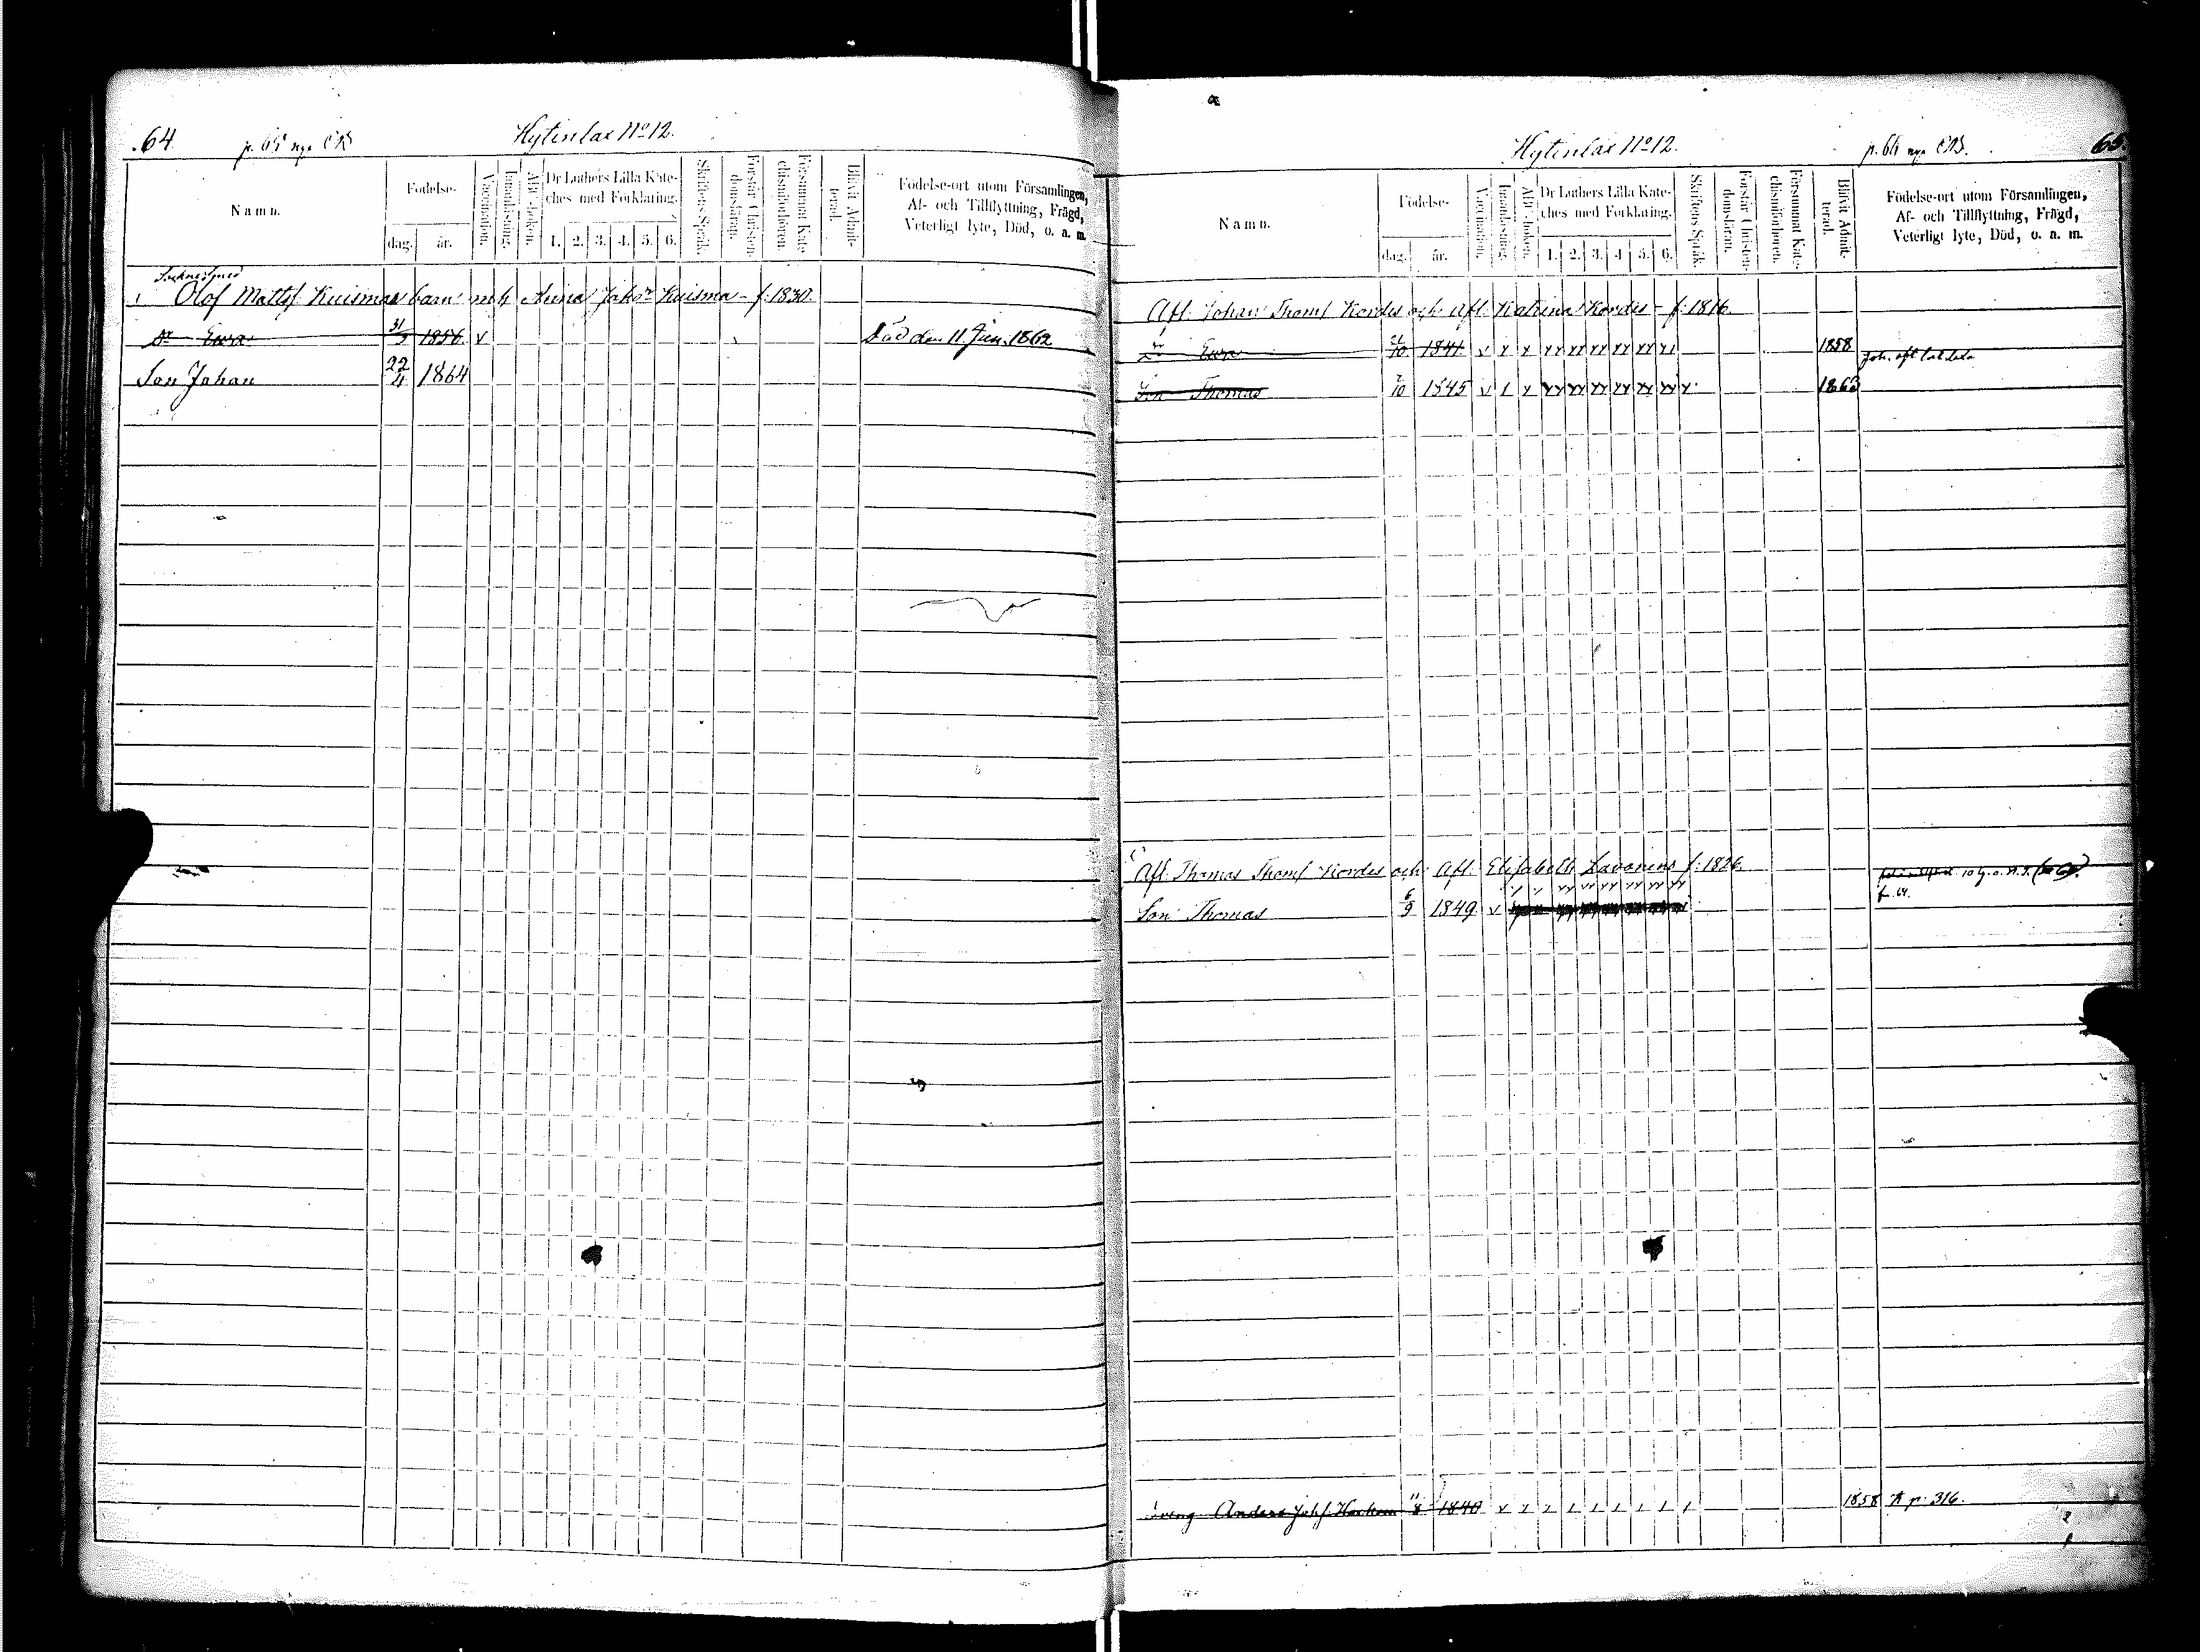 64
Hytinlax No 12.
Namn.
Födelse-
dag.
år.
Vaccination.
Innanläsning.
Abc-boken.
Dr Luthers Lilla Kate-
ches med Förklaring.
1. 2. 3. 4. 5. 6.
Skriftens Språk.
Förstår Christen-
domsläran.
Försummat Kate-
chismiförhören.
Blifvit Admit-
terad.
Födelse-ort utom Församlingen,
Af- och Tillflyttning, Frägd,
Veterligt lyte, Död, o. a. m.
Olof Mattsf Kuismas barn m h Anna Jaksr Kuisma - f. 1830.
Dr Ewa 31/3 1856 v Död den 11 Jun. 1862
Son Johan 22/4 1864
65
Hytinlax No 12.
Namn.
Födelse-
dag.
år.
Vaccination.
Innanläsning.
Abc-boken.
Dr Luthers Lilla Kate-
ches med Förklaring.
1. 2. 3. 4. 5. 6.
Skriftens Språk.
Förstår Christen-
domsläran.
Försummat Kate-
chismiförhören.
Blifvit Admit-
terad.
Födelse-ort utom Församlingen,
Af- och Tillflyttning, Frägd,
Veterligt lyte, Död, o. a. m.
Afl. Johan Thomf Kordes och afl. Katrina Kordis - f. 1816.
Dr Ewa 1841 1858
Son Thomas 7/10 1845 1863
Afl. Thomas Thomf Kordes och Afl. Elisabeth Lavonens f. 1826.
Son Thomas 6/9 1849 v
Dreng Anders 11/8 1840 1858 p. 316.